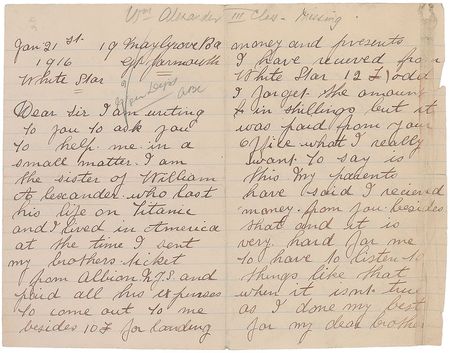 Wm Alexander III Class - Missing
Jan 21st. 19 Maygrove Rd
1916 Gt Yarmouth
White Star
Dear Sir I am writing
to you to ask you
to help me in a
small matter. I am
the sister of William
Alexander who lost
his life on Titanic
and I lived in America
at the time I sent
my brothers ticket
from Albion N.Y.S. and
paid all his expenses
to come out to me
besides 10£ for landing
money and presents
I have recieved from
White Star 12£ odd
I forget the amount
in shillings but it
was paid from your
Office what I really
want to say is
this My parents
have said I recieved
money from you besides
that and it is
very hard for me
to have to listen to
things like that
when it isnt true
as I done my best
for my dear brother